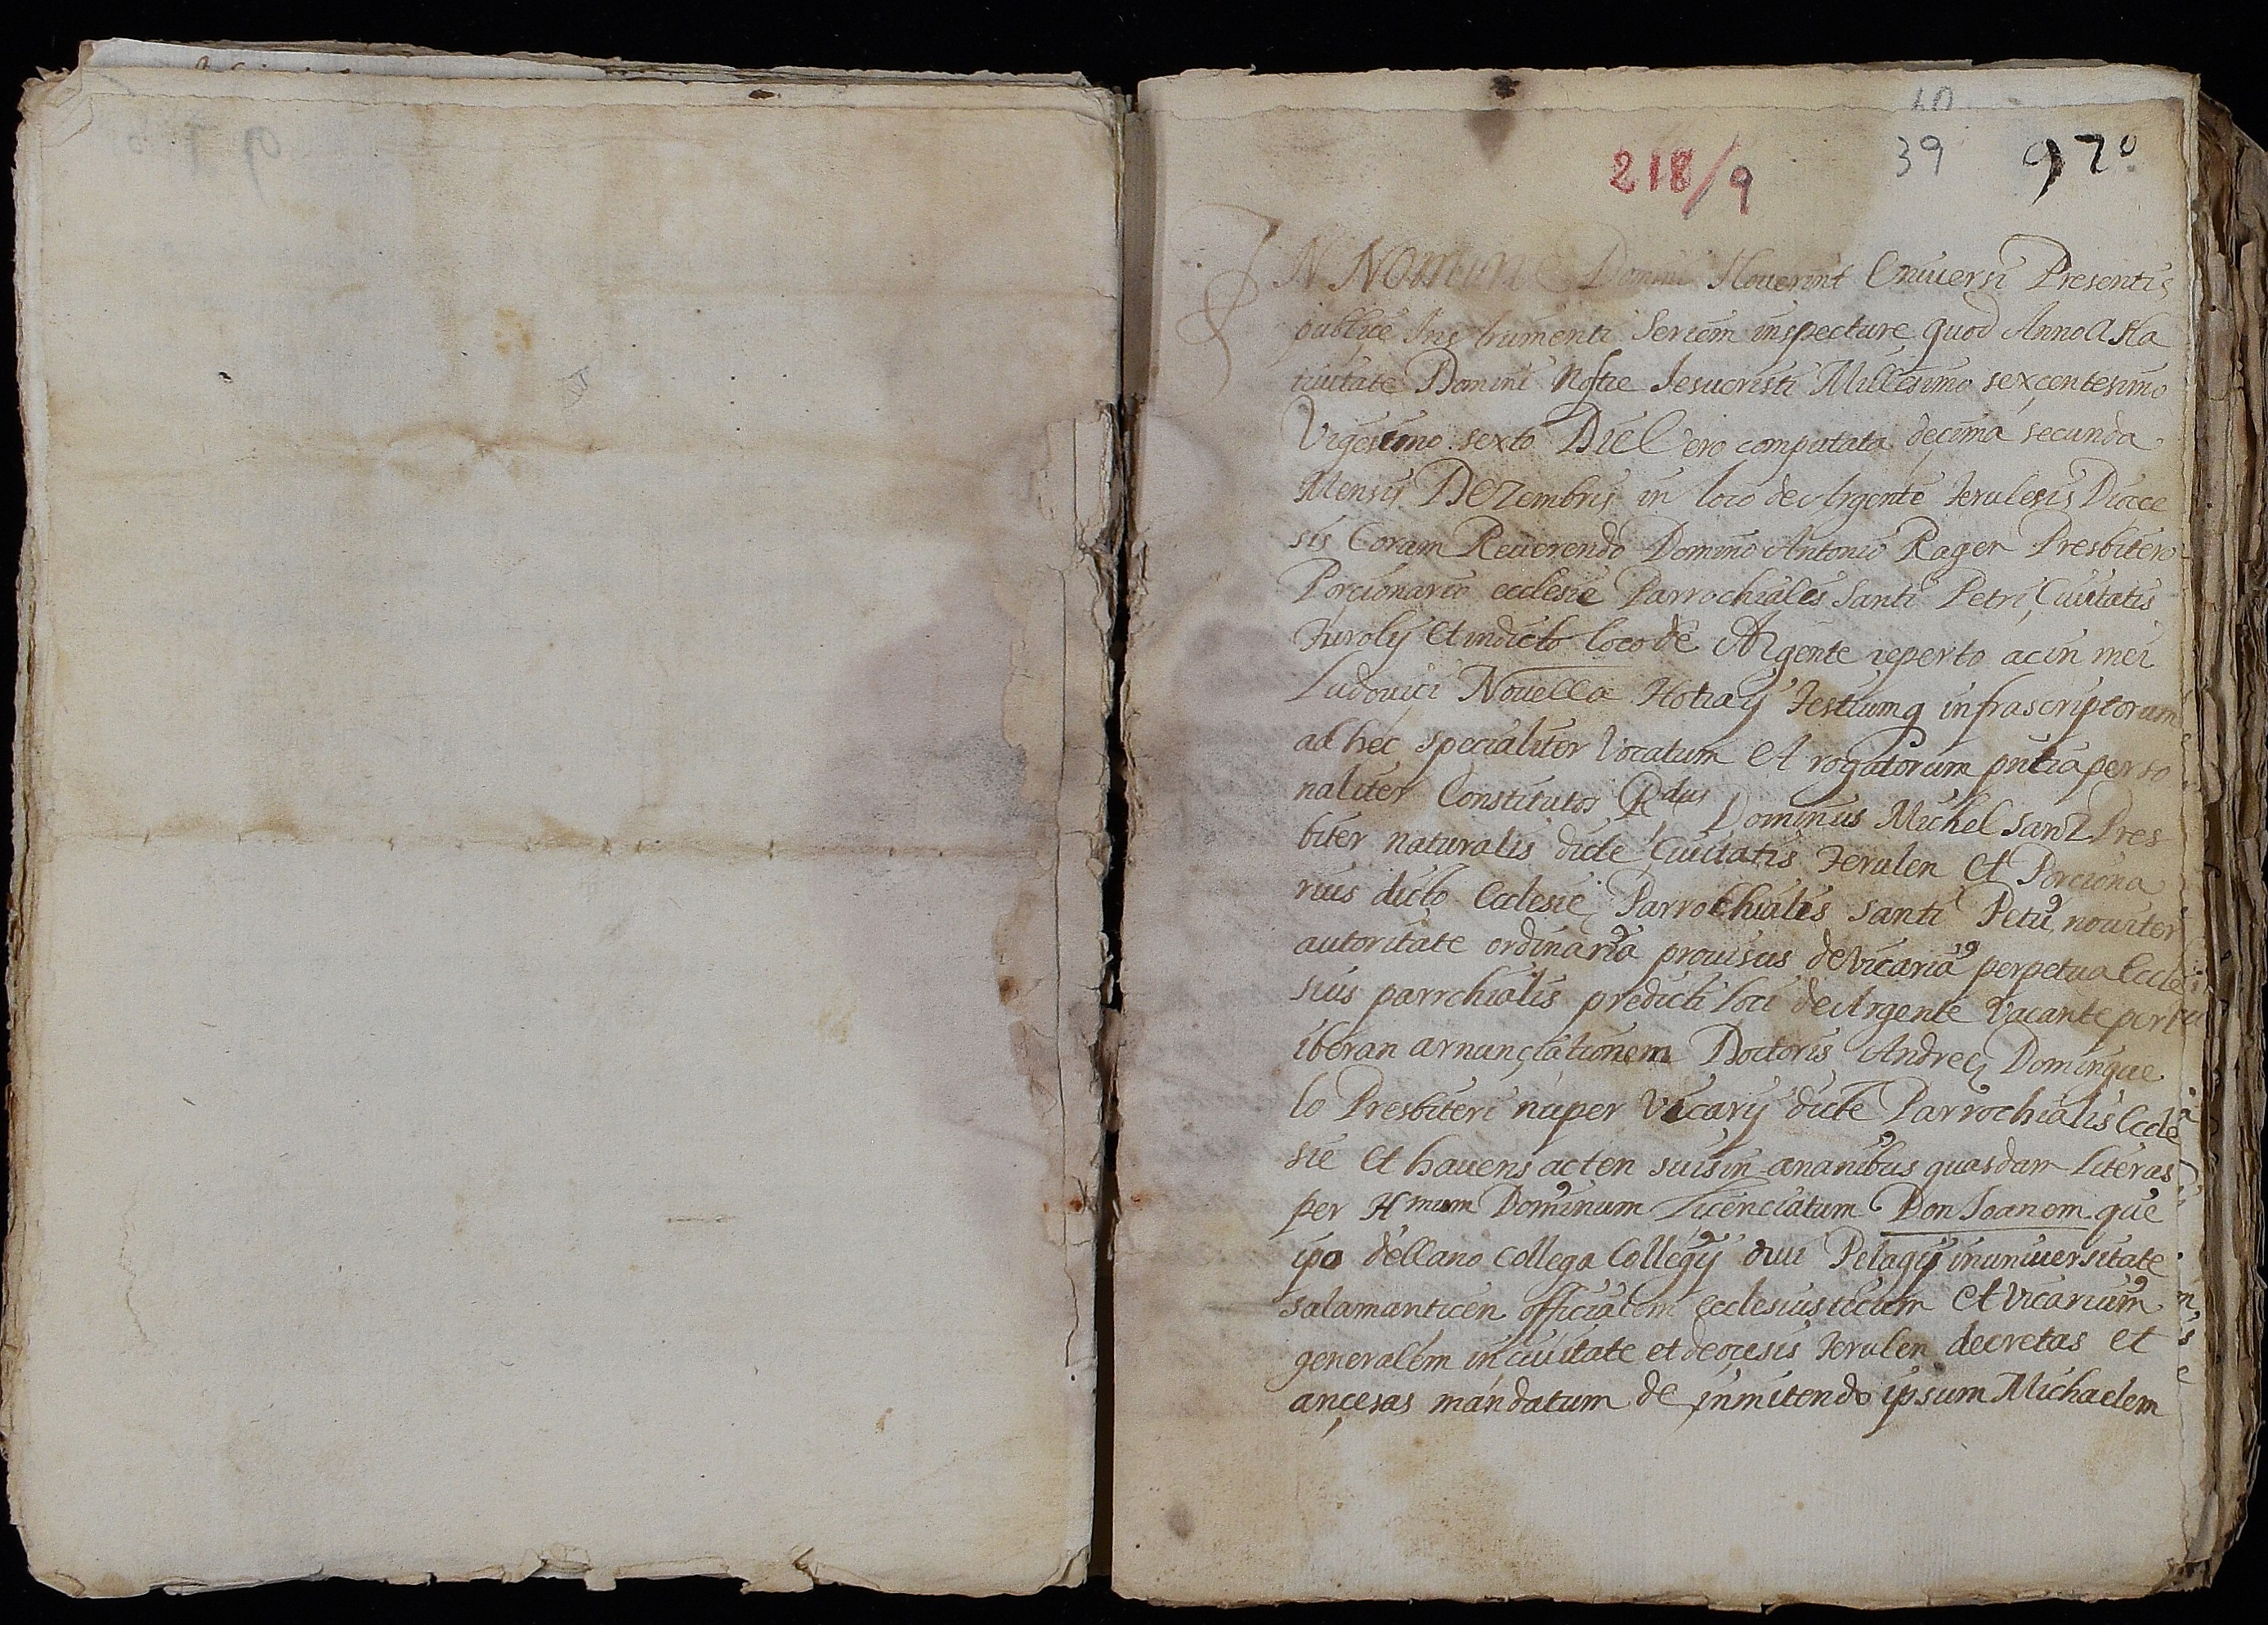 40
218/9 39 97º
IN Nomine Domini Noverint Universi Presentis
publice Instrumenti seriem inspecture quod Anno a Na
tivitate Domini Nostre Jesucristi Millesimo sexcentesimo
Vigesimo sexto Die Vero computata decima secunda
Mensis Dezembris in loco de Argente Terulesis Dioce
sis Coram Reverendo Domino Antonio Rager Presbitero
Porcionario ecclesie Parrochialis Santi Petri Civitatis
Turolij Et in dicto loco de Argente reperto ac in mei
Ludovici Novella Notarij Testiumq infrascriptorum
ad hec specialiter Vocatum et rogatorum pntia perso
naliter Constitutos Rdus Dominus Michel Sanz Pres
biter naturalis dicte Civitatis Terulen et Porciona
rius dicto Ecclesie Parrochialis Santi Petri noviter
autoritate ordinaria provisus de vicaria perpetua Eccle
sius parrchialis predicti loci de Argente Vacante per
iberan arnunçiationem Doctoris Andreę Domingue
lo Presbiteri nuper Vicarij dicte Parrochialis Eccle
sie et havens ac ten suis in ananibus quasdam literas
per Hmum Dominum Licenciatum Don Joanem que
ipo dellano collega Collegij divi Pelagij in universitate
salamanticen officialem ecclesiusticum et vicarium
generalem in civitate et deocesis Terulen decretas et
ançeras mandatum de inmitendo ipsum Michaelem